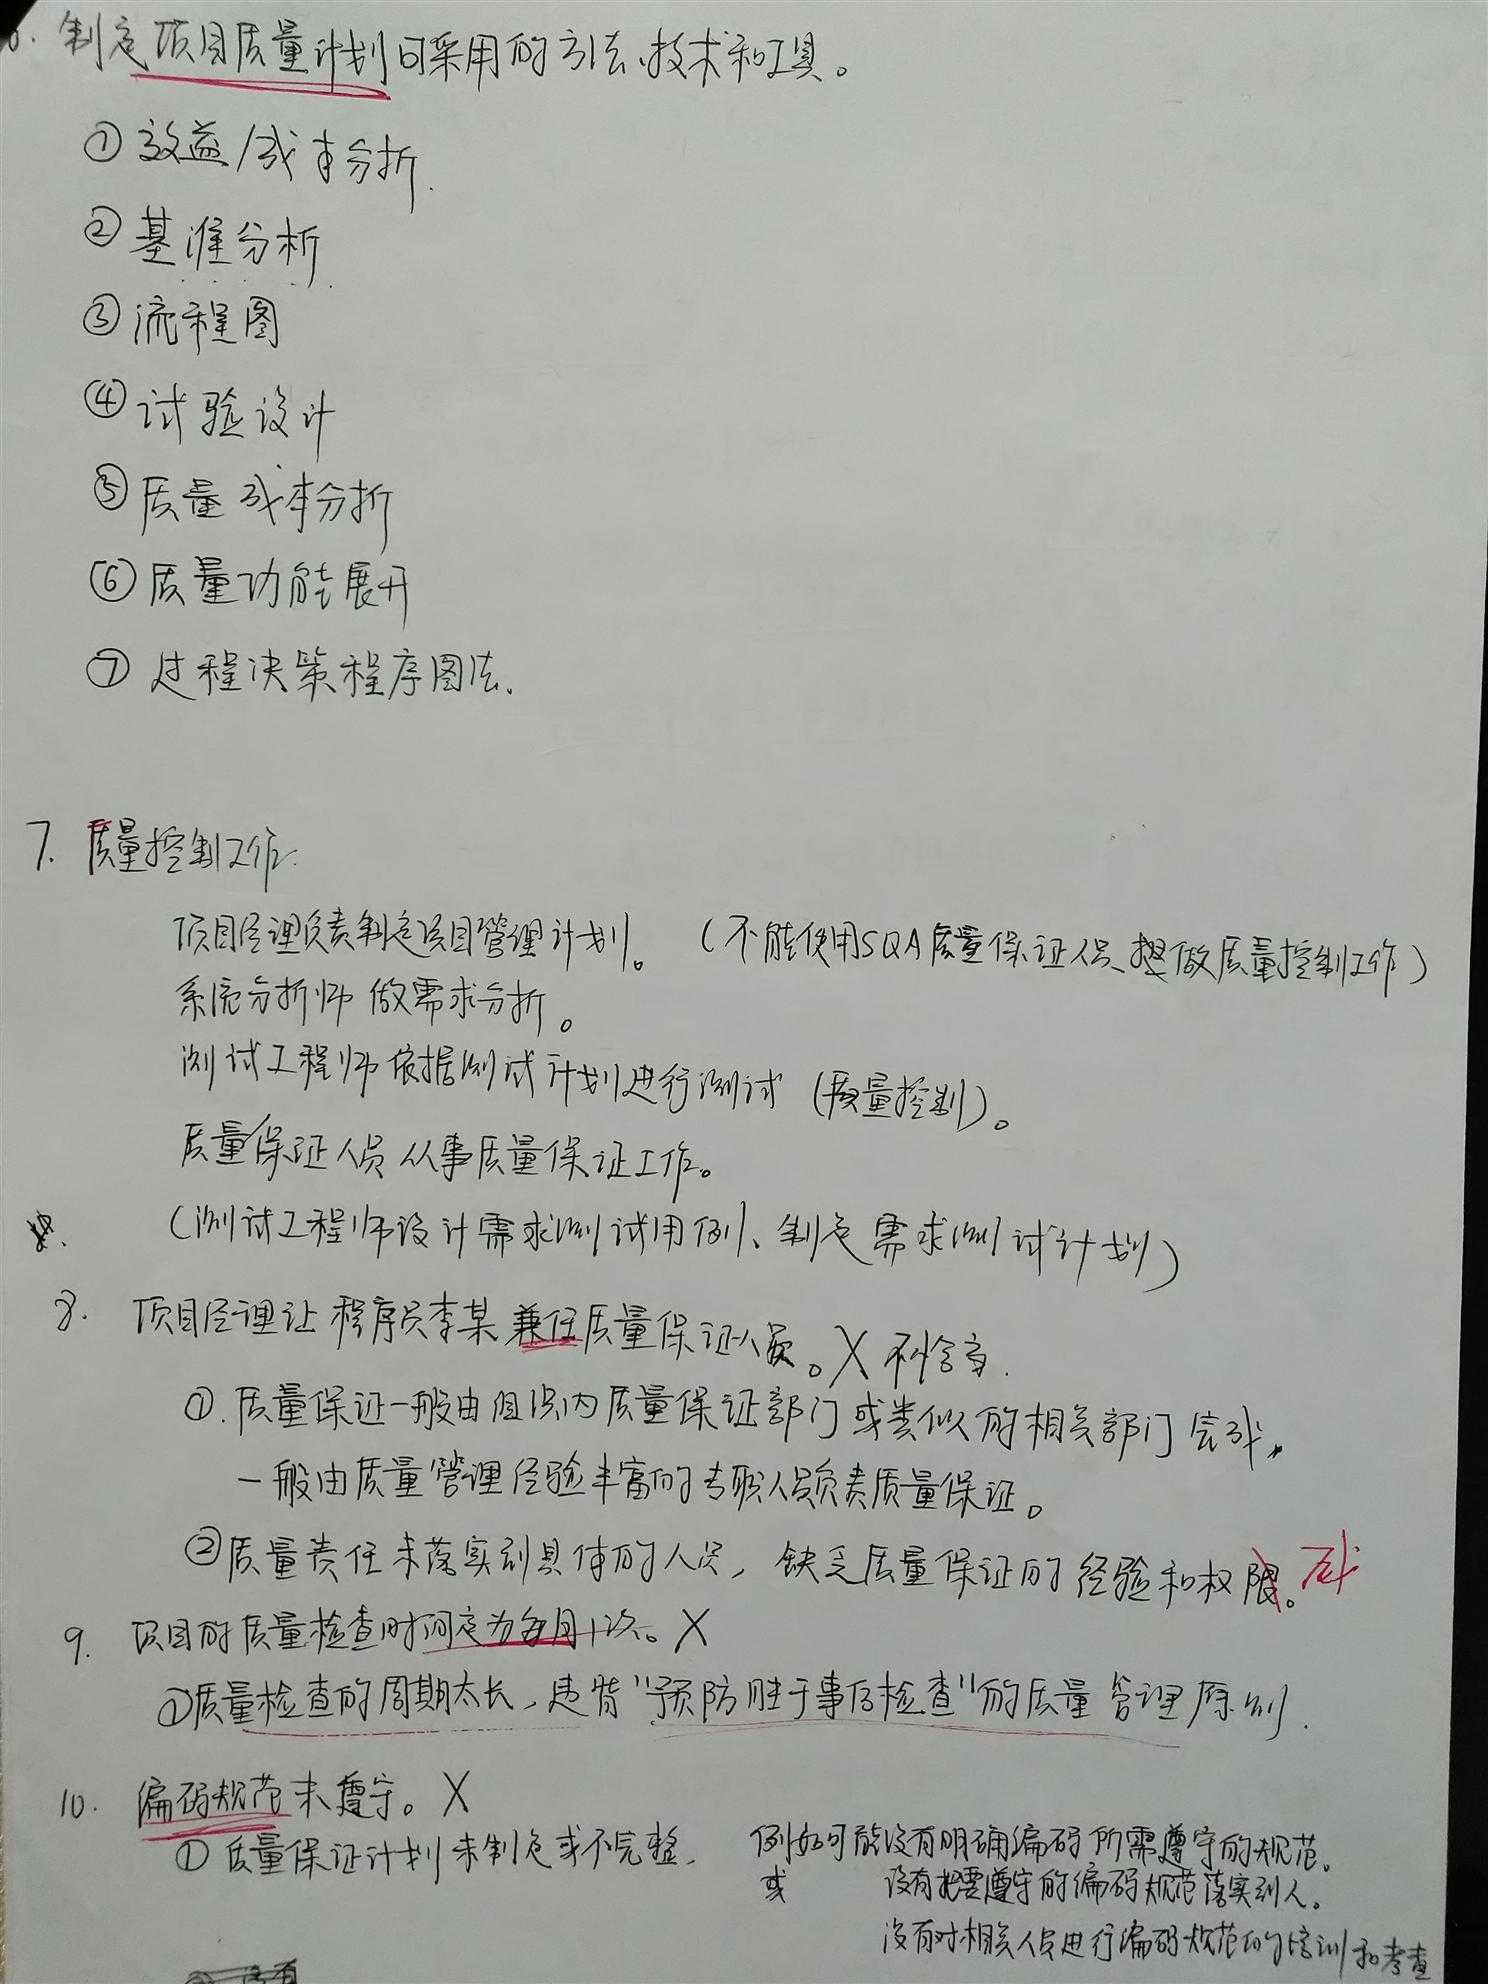 6. 制定项目质量计划可采用的方法、技术和工具。
① 效益/成本分析.
② 基准分析
③ 流程图
④ 试验设计
⑤ 质量成本分析
⑥ 质量功能展开
⑦ 过程决策程序图法.
7. 质量控制工作.
项目经理负责制定项目管理计划。 (不能使用SQA质量保证人员、去做质量控制工作)
系统分析师做需求分析。
测试工程师依据测试计划进行测试 (质量控制)。
质量保证人员从事质量保证工作。
(测试工程师设计需求测试用例、制定需求测试计划)
8. 项目经理让程序员李某兼任质量保证人员。X 不恰当.
①. 质量保证一般由组织内质量保证部门或类似的相关部门完成。
一般由质量管理经验丰富的专职人员负责质量保证。
② 质量责任未落实到具体的人员, 缺乏质量保证的经验和权限。
9. 项目的质量检查时间定为每月1次。X
① 质量检查的周期太长, 违背"预防胜于事后检查"的质量管理原则.
10. 编码规范未遵守。X
① 质量保证计划未制定或不完整, 例如可能没有明确编码所需遵守的规范。
或 没有把要遵守的编码规范落实到人。
没有对相关人员进行编码规范的培训和考查